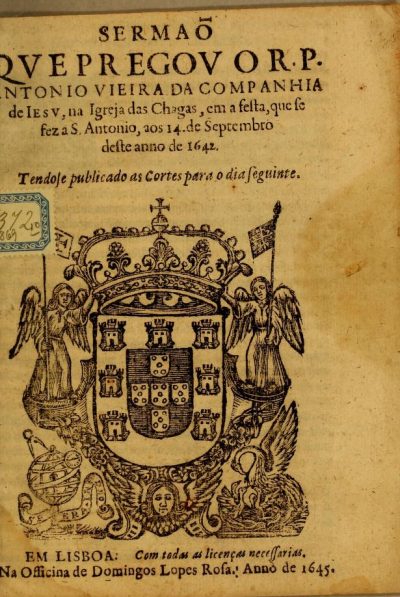 SERMAÕ
QVE PREGOV O R. P.
ANTONIO VIEIRA DA COMPANHIA
de IESV, na Igreja das Chagas, em a festa, que se
fez a S. Antonio, aos 14. de Septembro
deste anno de 1642.
Tendose publicado as Cortes para o dia seguinte.
372
EM LISBOA: Com todas as licenças necessarias.
Na Officina de Domingos Lopes Rosa. Anno de 1645.